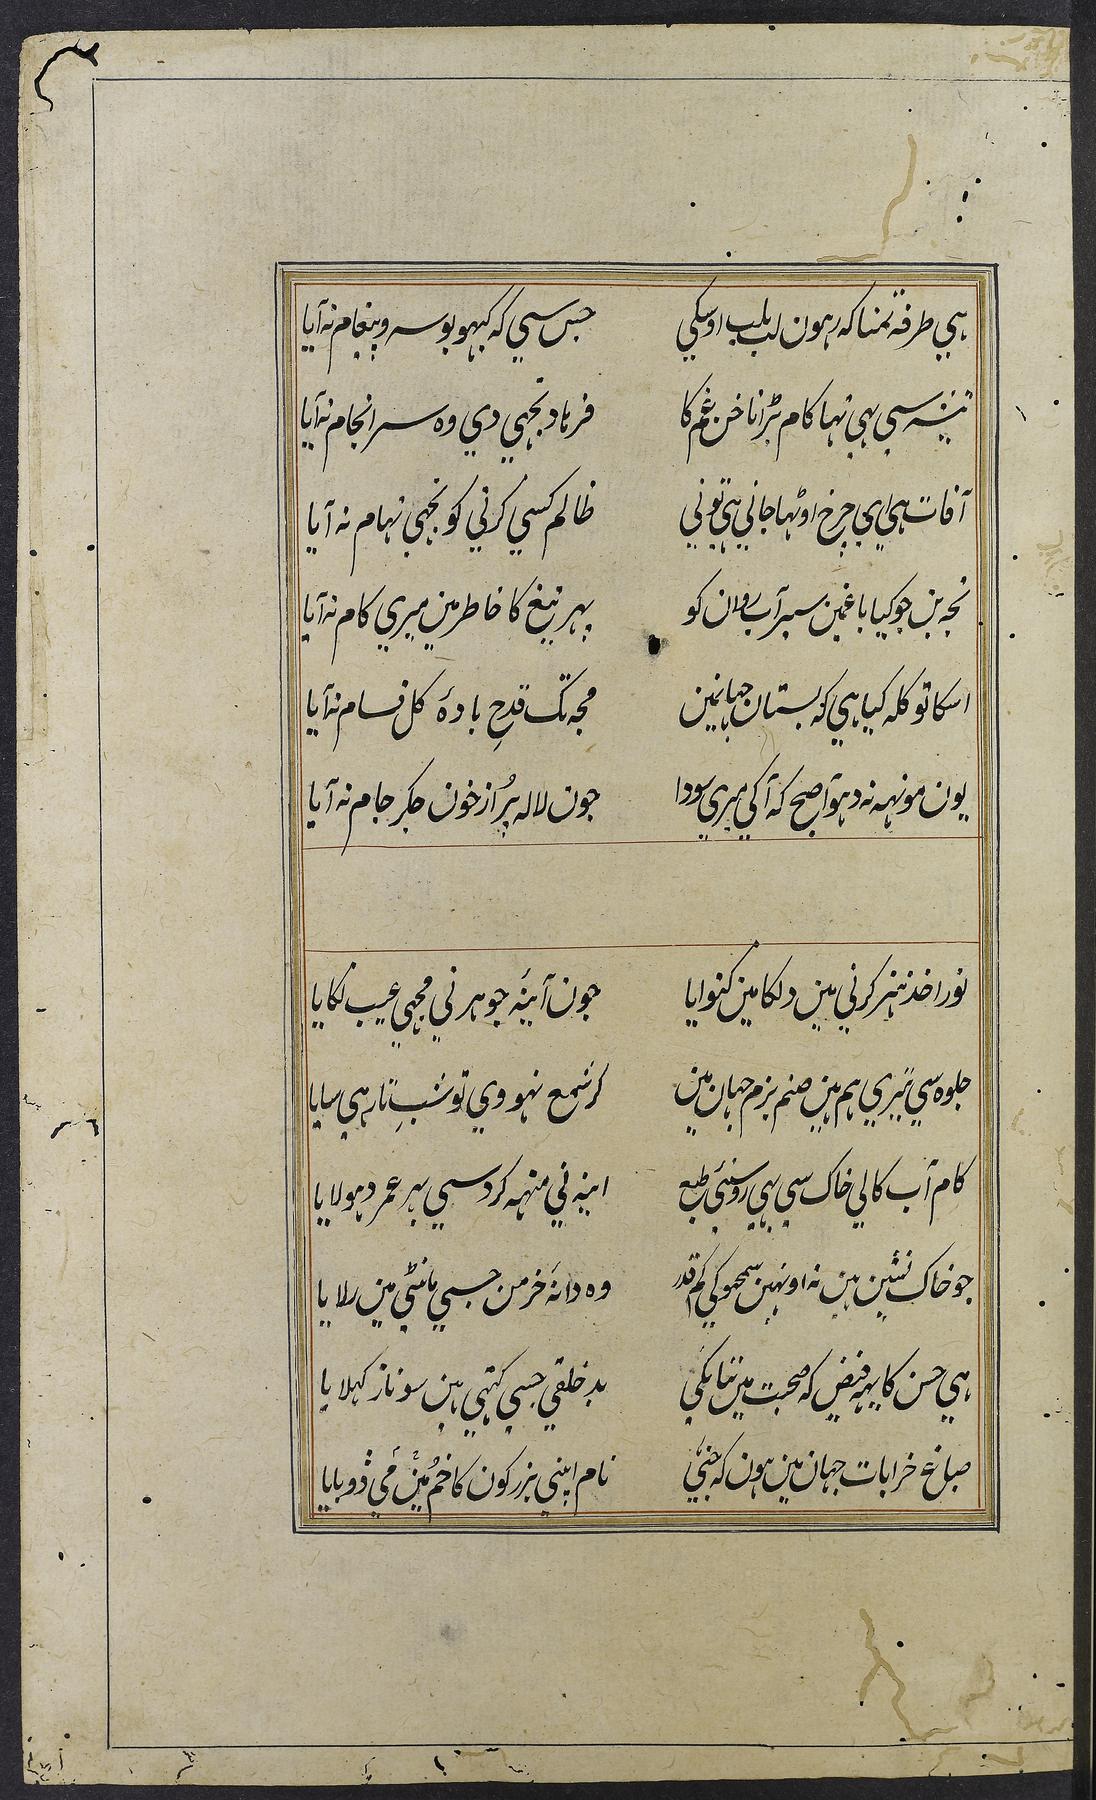 ہی طرفہ تمنا کہ رہون لب بلب اوسکی جس سی کہ کبہو بوسہ و پیغام نہ آیا
تیشہ سی بہی تہا کام بڑا ناخن غم کا فرہاد تجہی دی وہ سرانجام نہ آیا
آفات ہی ای چرخ اوٹہا جانی ہی تو نی ظالم کسی کرنی کو تجہی تہام نہ آیا
تجہ بن جو کیا باغمین سیر آب روان کو بہر تیغ کا خاطر مین میری کام نہ آیا
اسکا تو کلہ کیا ہی کہ بستان جہانمین مجہ تک قدح بادۂ کل فام نہ آیا
یون مونہہ نہ دہوآ صبح کہ آکی میری سودا جون لالہ پُر از خون جکر جام نہ آیا
نور اخذ ہنر کرنی مین دلکا مین کنوایا جون آینہٴ جوہر نی مجہی عیب لکایا
جلوہ سی تیری ہم ہین صنم بزم جہان مین کر شمع نہووی تو شبِ تار ہی سایا
کام آب کا لی خاک سی بہی روشنئی طبع اینہ نی منہہ کرد سی بہر عمر دہولایا
جو خاک نشین ہین نہ اونہین سمجہو کی کم قدر وہ دانۂ خرمن جسی مانٹی مین رلایا
ہی حسن کا یہہ فیض کہ صحبت مین بتانکی بد خلقی جسی کہتی ہین سو ناز کہلایا
صباغ خرابات جہان مین ہون کہ جنی نام اپنی بزرکون کا خُم مَین مَی ڈوبایا